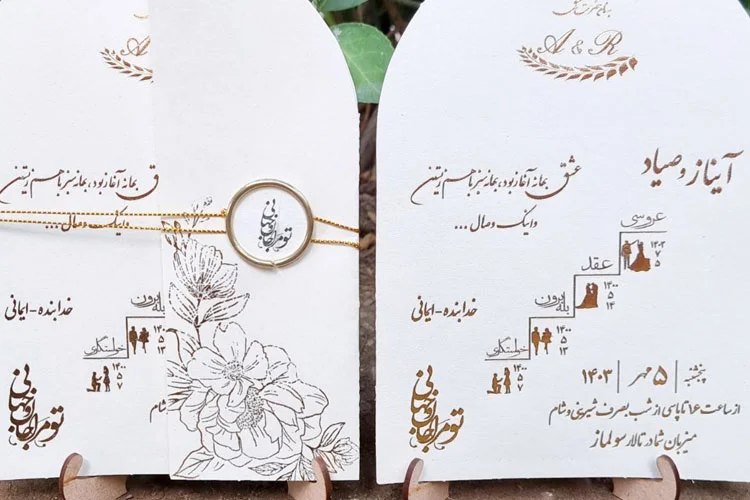 A & R
ق بهانه آغاز بود، بهانه سبز با هم زیستن
و اینک وصال ...
خدابنده-ایمانی
بله برون
۱۴۰۰
۵
۱۳
خواستگاری
۱۴۰۰
۵
۷
تو مرا جان و جهانی
شام
تو مرا جان و جهانی
A & R
آیناز و صیاد
عشق بهانه آغاز بود، بهانه سبز با هم زیستن
و اینک وصال ...
عروسی
۱۴۰۳
۷
۵
عقد
۱۴۰۰
۵
۱۴
بله برون
۱۴۰۰
۵
۱۳
خواستگاری
۱۴۰۰
۵
۷
خدابنده-ایمانی
تو مرا جان و جهانی
پنجشنبه | ۵ مهر | ۱۴۰۳
از ساعت ۱۶ تا پاسی از شب بصرف شیرینی و شام
میزبان شما در تالار سولماز